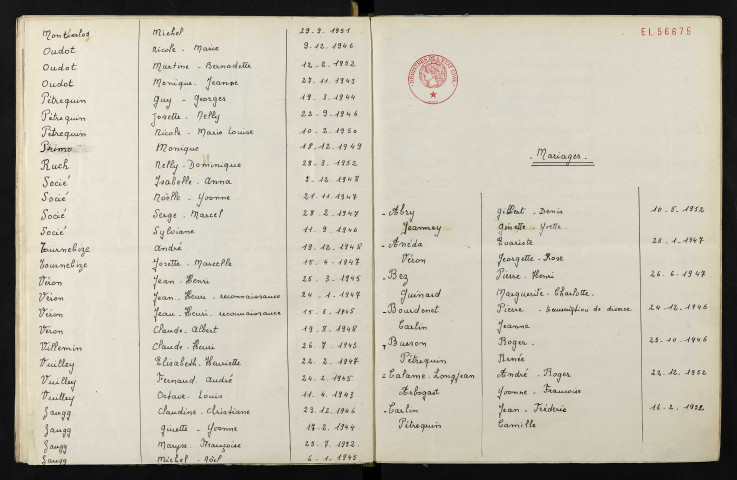 Montserlos Michel 29.9.1951
Oudot Nicole - Marie 9.12.1946
Oudot Martine - Bernadette 12.2.1952
Oudot Monique - Jeanne 27.11.1943
Pétrequin Guy - Georges 19.3.1944
Pétrequin Josette - Nelly 22.9.1946
Pétrequin Nicole - Marie Louise 10.2.1950
Primo Monique 18.12.1949
Ruch Nelly - Dominique 28.3.1952
Socié Isabelle - Anna 9.12.1948
Socié Noëlle - Yvonne 21.11.1947
Socié Serge - Marcel 28.2.1947
Socié Sylviane 11.9.1946
Tournebize André 19.12.1948
Tournebize Josette - Marcelle 15.4.1947
Véron Jean - Henri 25.3.1945
Véron Jean - Henri - reconnaissance 24.1.1947
Véron Jean - Henri - reconnaissance 15.5.1945
Véron Claude - Albert 19.8.1948
Villemin Claude - Henri 26.7.1943
Vuilley Elisabeth - Henriette 22.2.1947
Vuilley Fernand - André 24.2.1945
Vuilley Octave - Louis 11.4.1943
Zaugg Claudine - Christiane 23.12.1946
Zaugg Ginette - Yvonne 17.2.1944
Zaugg Maryse - Françoise 25.7.1952
Zaugg Michel - Noël 6.1.1945
EL56675
- Mariages -
- Abry Gilbert - Denis 10.5.1952
Jeanney Ginette - Yvette
- Anéda Evariste 25.1.1947
Véron Georgette - Rose
- Bez Pierre - Henri 26.6.1947
Guinard Marguerite - Charlotte
- Bourdenet Pierre - transcription de divorce 24.12.1946
Carlin Jeanne
- Busson Roger 23.10.1946
Pétrequin Renée
- Calame - Longjean André - Roger 22.12.1952
Arbogast Yvonne - Françoise
- Carlin Jean - Frédéric 16.2.1952
Pétrequin Camille